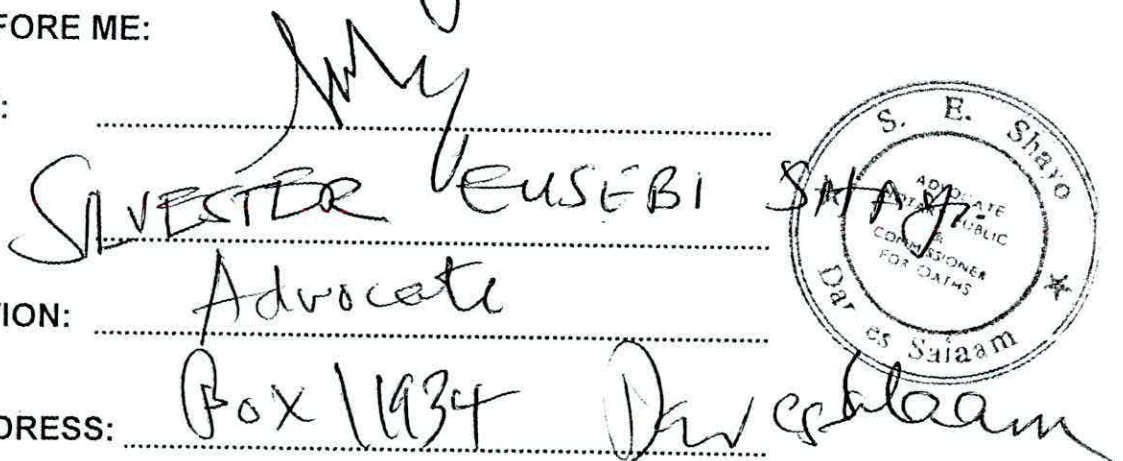 FORE ME:
:
SILVESTER EUSEBI SHAYO
TION: Advocate
DRESS: Box 11934 Dar es Salaam
S. E. Shayo
ADVOCATE
NOTARY PUBLIC
&
COMMISSIONER
FOR OATHS
Dar es Salaam